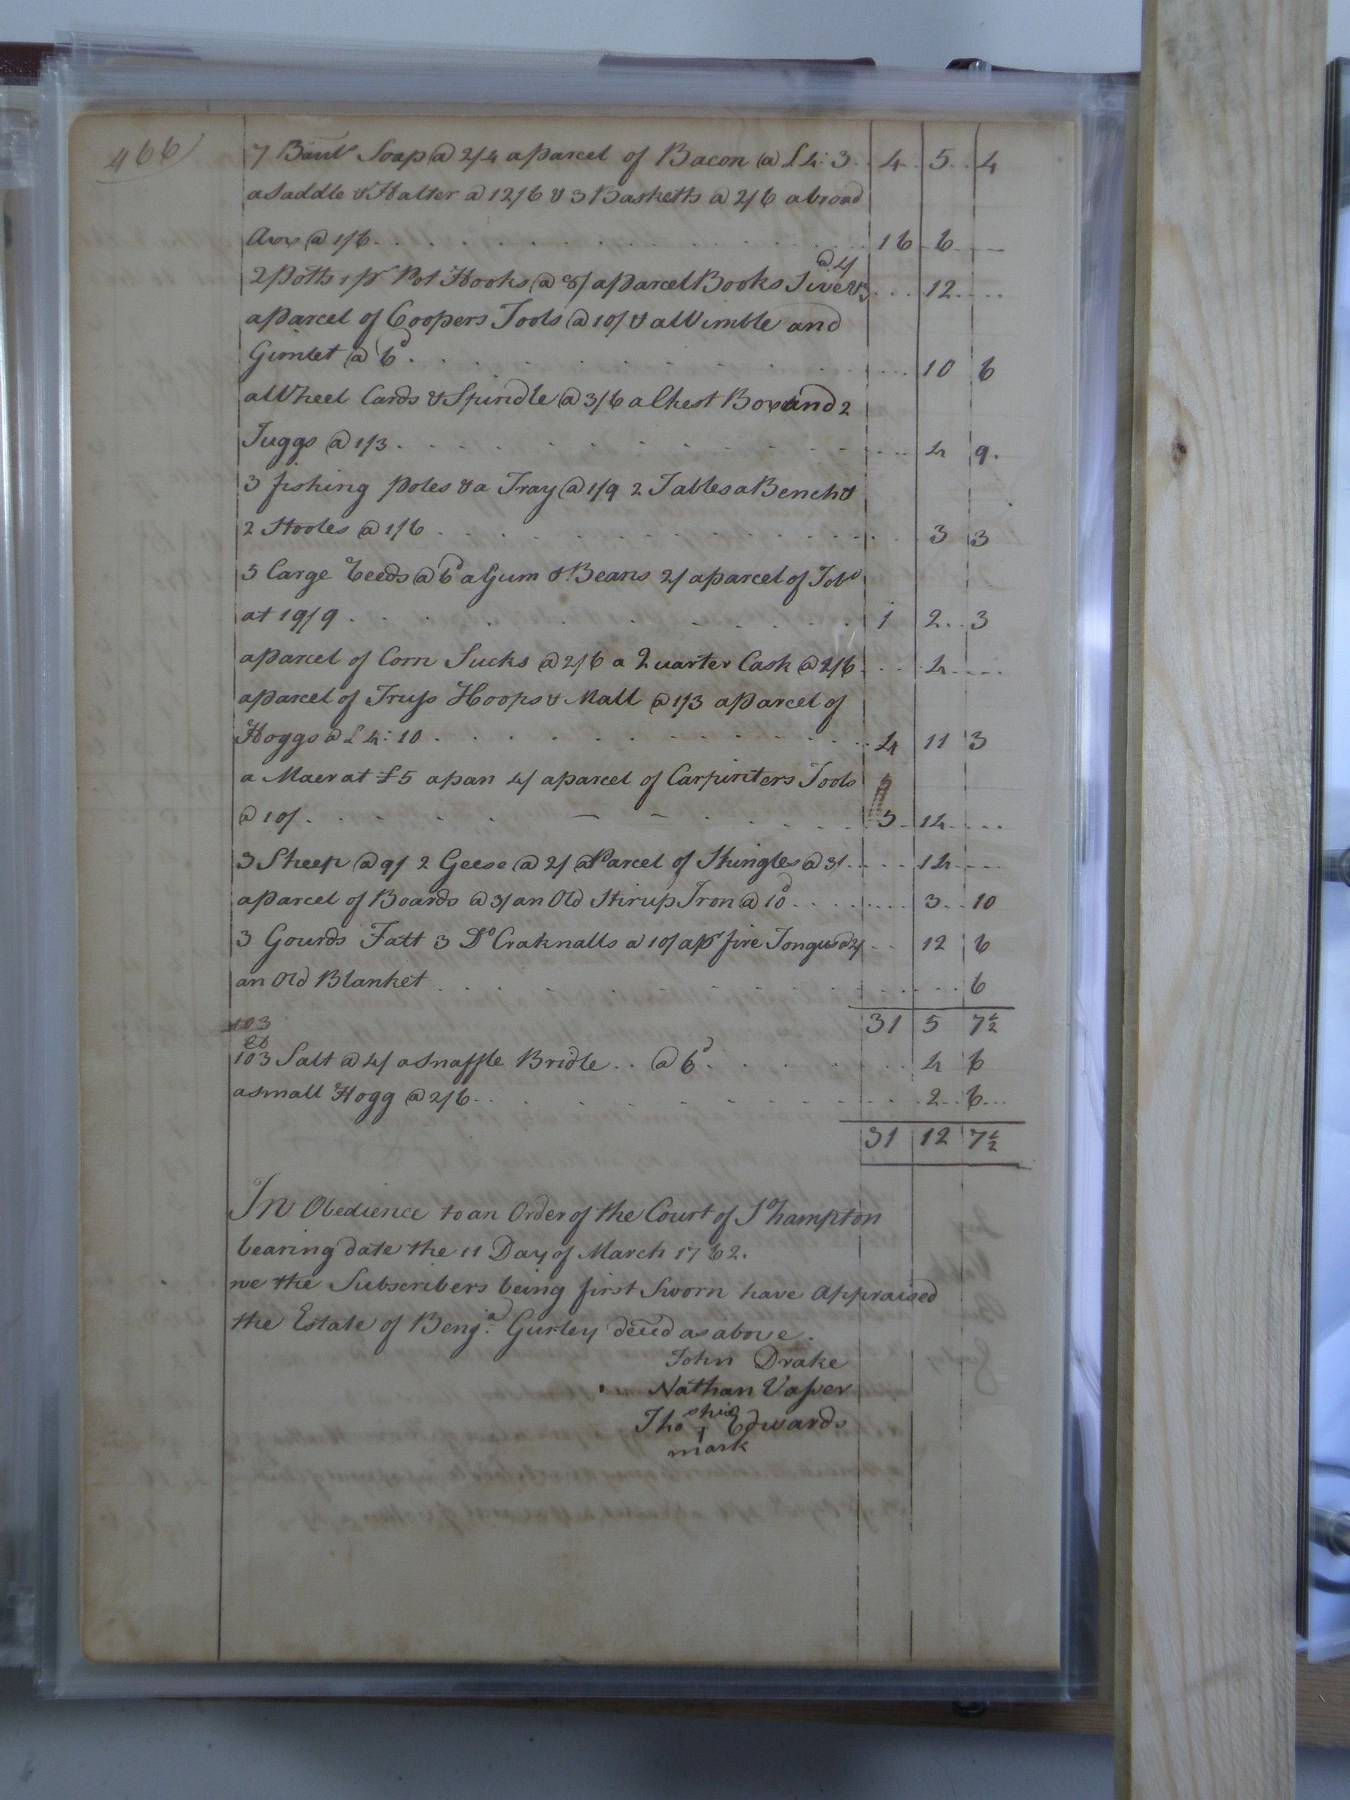 466
7 Barrl Soap @ 2/4 a parcel of Bacon @ £4:3 4 5 4
a Saddle & Halter @ 12/6 & 3 Basketts @ 2/6 a broad
Axx @ 1/6 16 6
@ 4/
2 Potts 1 pr Pot Hooks @ 8/ a parcel Books 12
a parcel of Coopers Tools @ 10/ & a Wimble and
Gimlet @ 6d 10 6
a Wheel Cards & Spindle @ 3/6 a Chest Box and 2
Juggs @ 1/3 4 9
3 fishing poles & a Tray @ 1/9 2 Tables a Bench &
2 Stooles @ 1/6 3 3
a Gum & Beans 2/ a parcel of Tobo
at 19/9 1 2 3
a parcel of Corn Sucks @ 2/6 a Quarter Cask @ 2/6 4
a parcel of Truss Hoops & Mall @ 1/3 a parcel of
Hoggs @ £4:10 4 11 3
a Maer at £5 a pan 4/ a parcel of Carpinters Tools
@ 10/ 5 14
3 Sheep @ 9/ 2 Geese @ 2/ a Parcel of Shingles @ 3/ 14
a parcel of Boards @ 3/ an Old Stirup Iron @ 10d 3 10
3 Gourds Fatt 3 Do Craknalls @ 10/ a pr fire Tongus @ 2/ 12 6
an Old Blanket 6
31 5 7½
103
103 Salt @ 4/ a Snaffle Bridle @ 6d 4 6
a small Hogg @ 2/6 2 6
31 12 7½
In Obedience to an Order of the Court of So hampton
bearing date the 11 Day of March 1762.
we the Subscribers being first Sworn have Appraised
the Estate of Benja. Gurley decd as above.
John Drake
Nathan Vasser
Tho his Edwards
mark